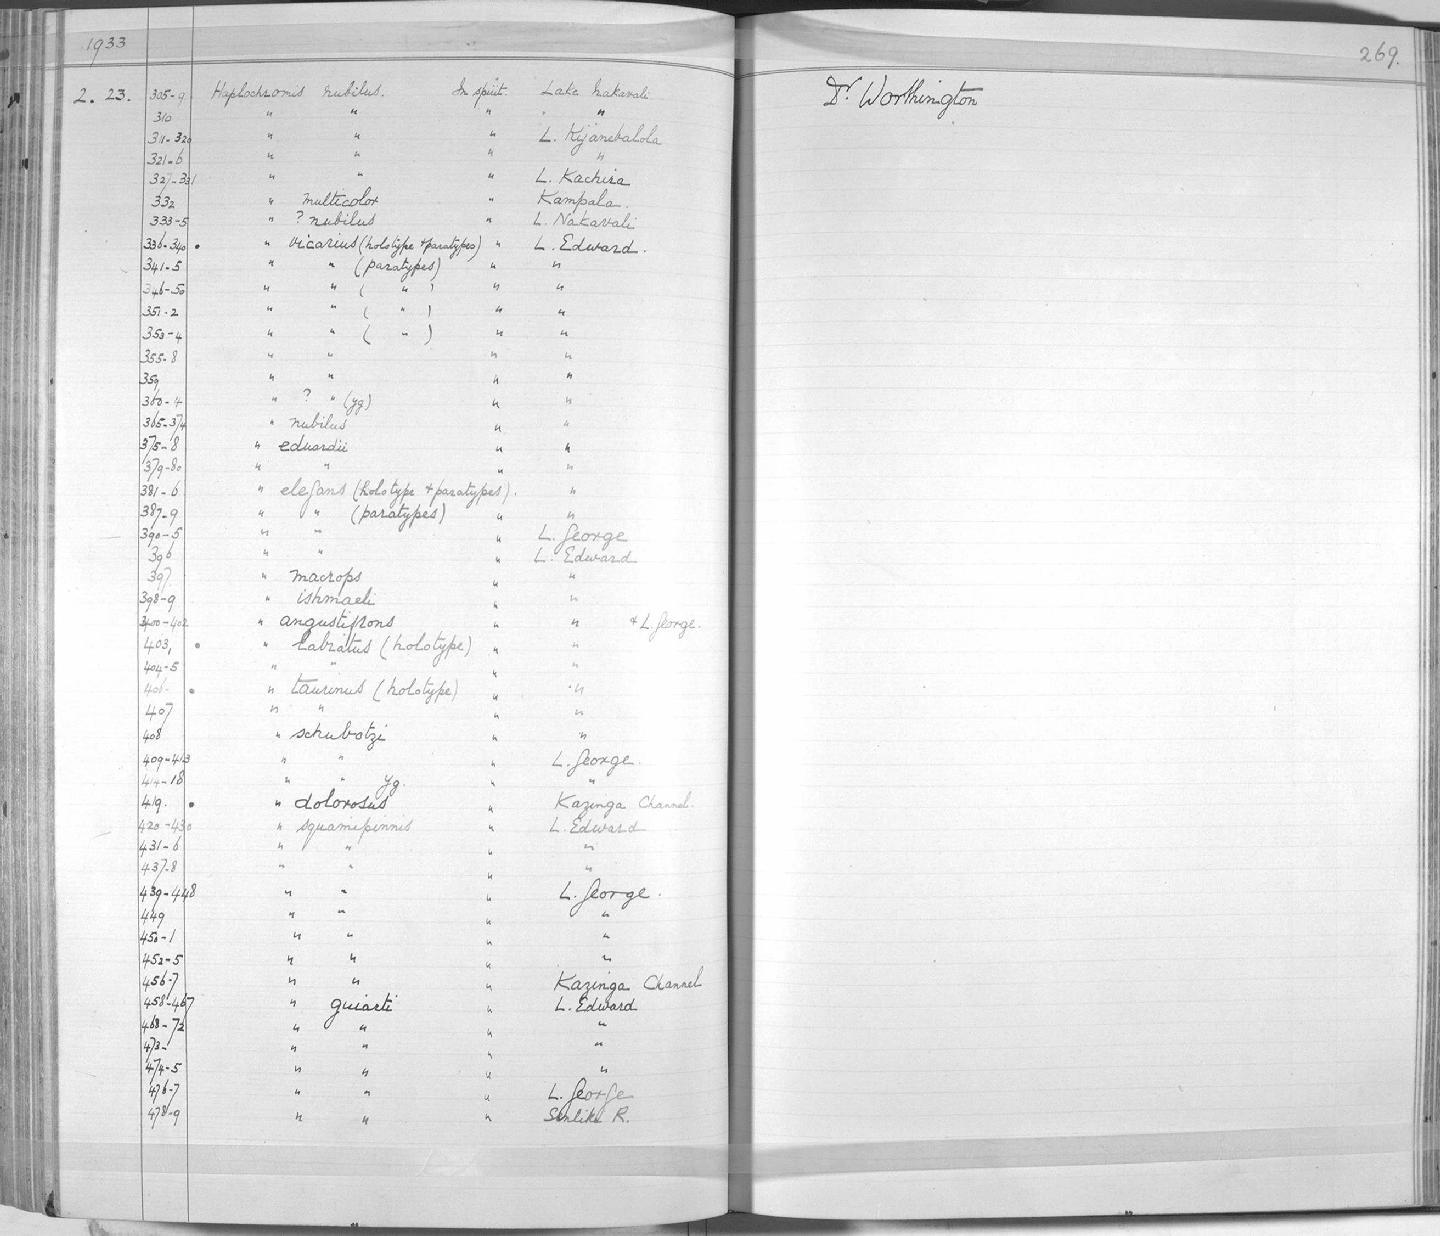 1933
269.
2. 23. 305-9 Haplochromis nubilus. In spirit. Lake Nakavali Dr Worthington
310 " " " "
311-320 " " " L. Kijanebalola
321-6 " " " "
327-331 " " " L. Kachira
332 " multicolor " Kampala.
333-5 " ? nubilus " L. Nakavali
336-340 • " vicarius (holotype & paratypes) " L. Edward.
341-5 " " (paratypes) " "
346-50 " " ( " ) " "
351-2 " " ( " ) " "
353-4 " " ( " ) " "
355-8 " " " "
359 " " " "
360-4 " ? " (yg) " "
365-374 " nubilus " "
375-8 " eduardii " "
379-80 " " " "
381-6 " elegans (holotype & paratypes). "
387-9 " " (paratypes) " "
390-5 " " " L. George
396 " " " L. Edward
397 " macrops " "
398-9 " ishmaeli " "
400-402 " angustifrons " " & L. George.
403, • " labiatus (holotype) " "
404-5 " " " "
406. • " taurinus (holotype) " "
407 " " " "
408 " schubotzi " "
409-413 " " " L. George.
414-18 " " yg. " "
419. • " dolorosus " Kazinga Channel.
420-430 " squamipinnis " L. Edward
431-6 " " " "
437-8 " " " "
439-448 " " " L. George.
449 " " " "
450-1 " " " "
452-5 " " " "
456-7 " " " Kazinga Channel
458-467 " guiarti " L. Edward
468-72 " " " "
473- " " " "
474-5 " " " "
476-7 " " " L. George
478-9 " " " R.